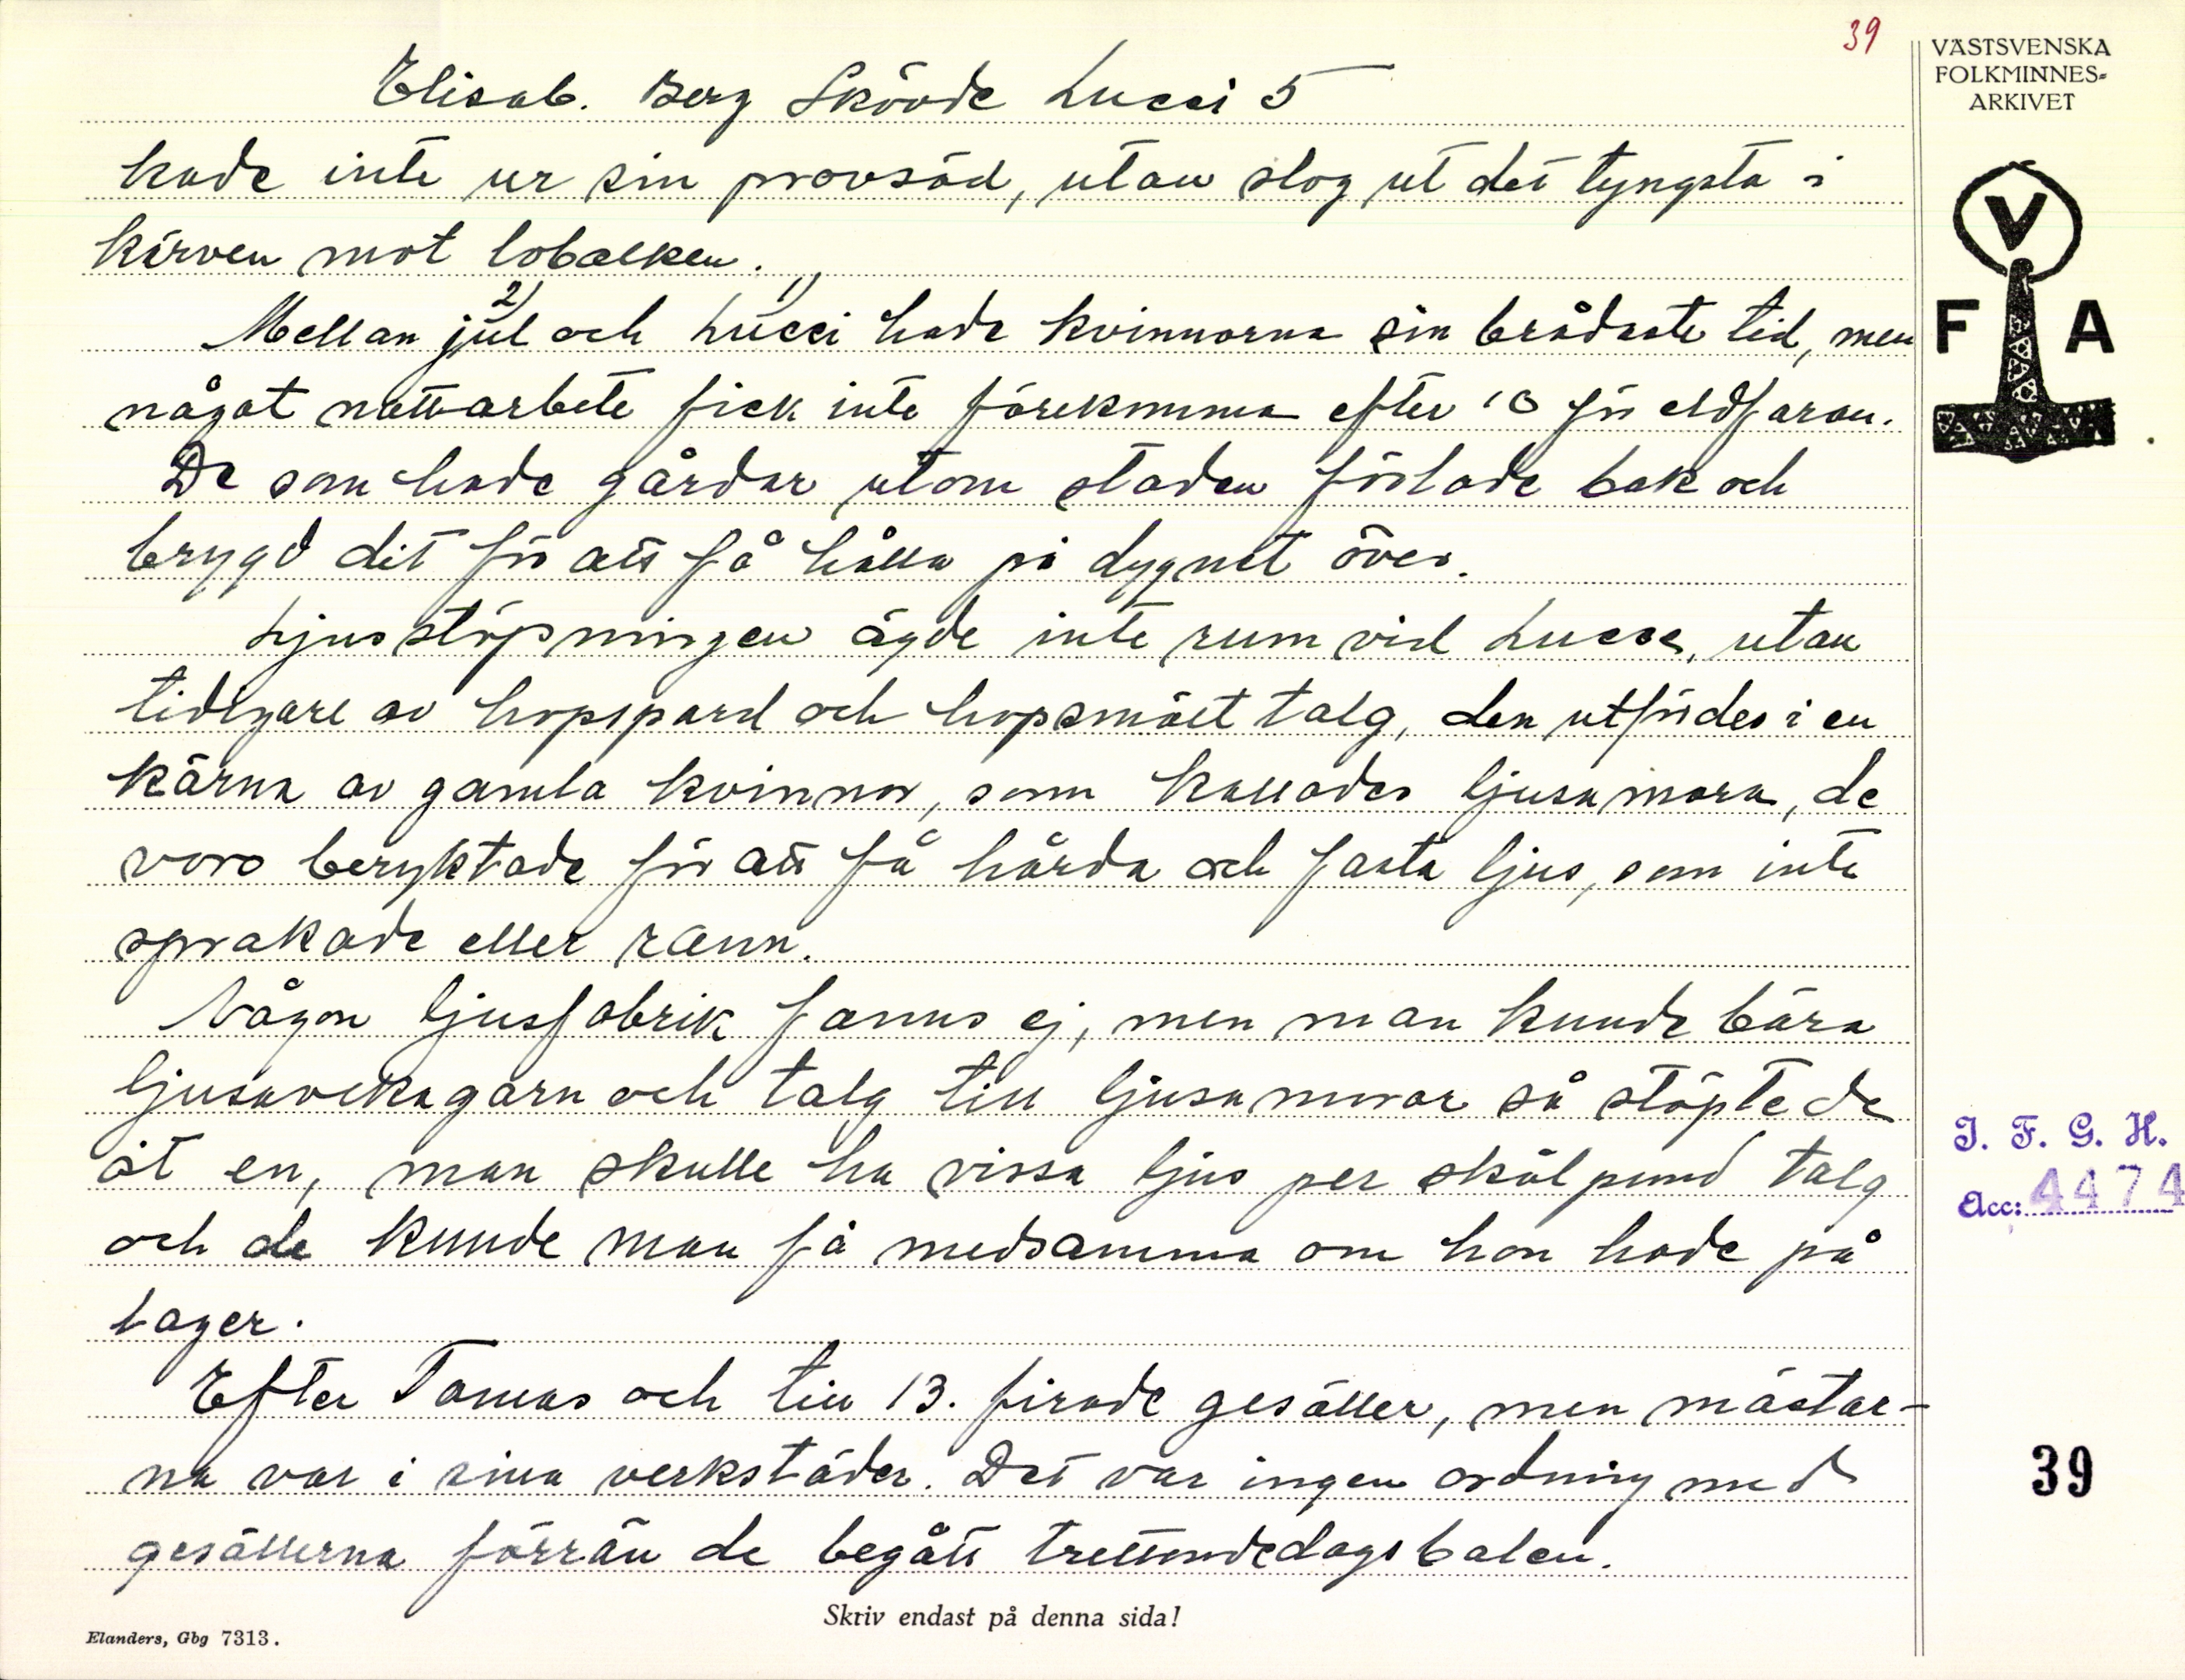 39
Elisab. Berg Skövde Lucci 5
kade inte ur sin provsäd, utan slog ut det tyngsta i
kärven mot lobalken.
Mellan jul 2) och Lucci 1) hade kvinnorna sin brådaste tid, men
något nattarbete fick inte förekomma efter 10 för eldfaran.
De som hade gårdar utom staden förlade bak och
brygd dit för att få hålla på dygnet över.
Ljusstöpningen ägde inte rum vid Lucci, utan
tidigare av hopspard och hopsmält talg, den utfördes i en
kärna av gamla kvinnor, som kallades ljusamora, de
voro beryktade för att få hårda och fasta ljus, som inte
sprakade eller rann.
Någon ljusfabrik fanns ej, men man kunde bära
ljusavekagarn och talg till ljusamorar så stöpte de
åt en, man skulle ha vissa ljus per skålpund talg
och de kunde man få medsamma om hon hade på
lager.
Efter Tomas och till 13. firade gesäller, men mästar-
na var i sina verkstäder. Det var ingen ordning med
gesällerna förrän de begått trettondedagsbalen.
Skriv endast på denna sida!
Elanders, Gbg 7313.
VÄSTSVENSKA
FOLKMINNES-
ARKIVET
V
F A
I. F. G. H.
Acc: 4474
39